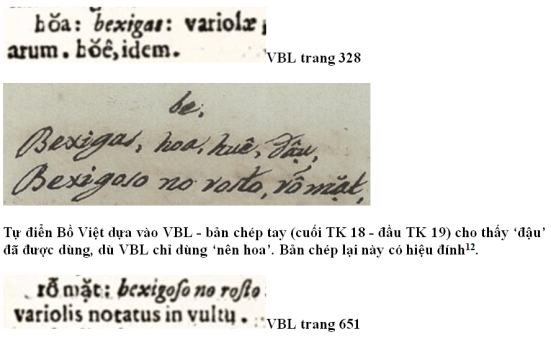 hŏa: bexigas: variolæ,
arum. hŏê, idem.
VBL trang 328
be,
Bexigas, hoa, huê, đậu,
Bexigoso no rosto, rỗ mặt,
Tự điển Bồ Việt dựa vào VBL - bản chép tay (cuối TK 18 - đầu TK 19) cho thấy ‘đậu’
đã được dùng, dù VBL chỉ dùng ‘nên hoa’. Bản chép lại này có hiệu đính12.
rỗ mặt: bexigoſo no roſto
variolis notatus in vultu.
VBL trang 651